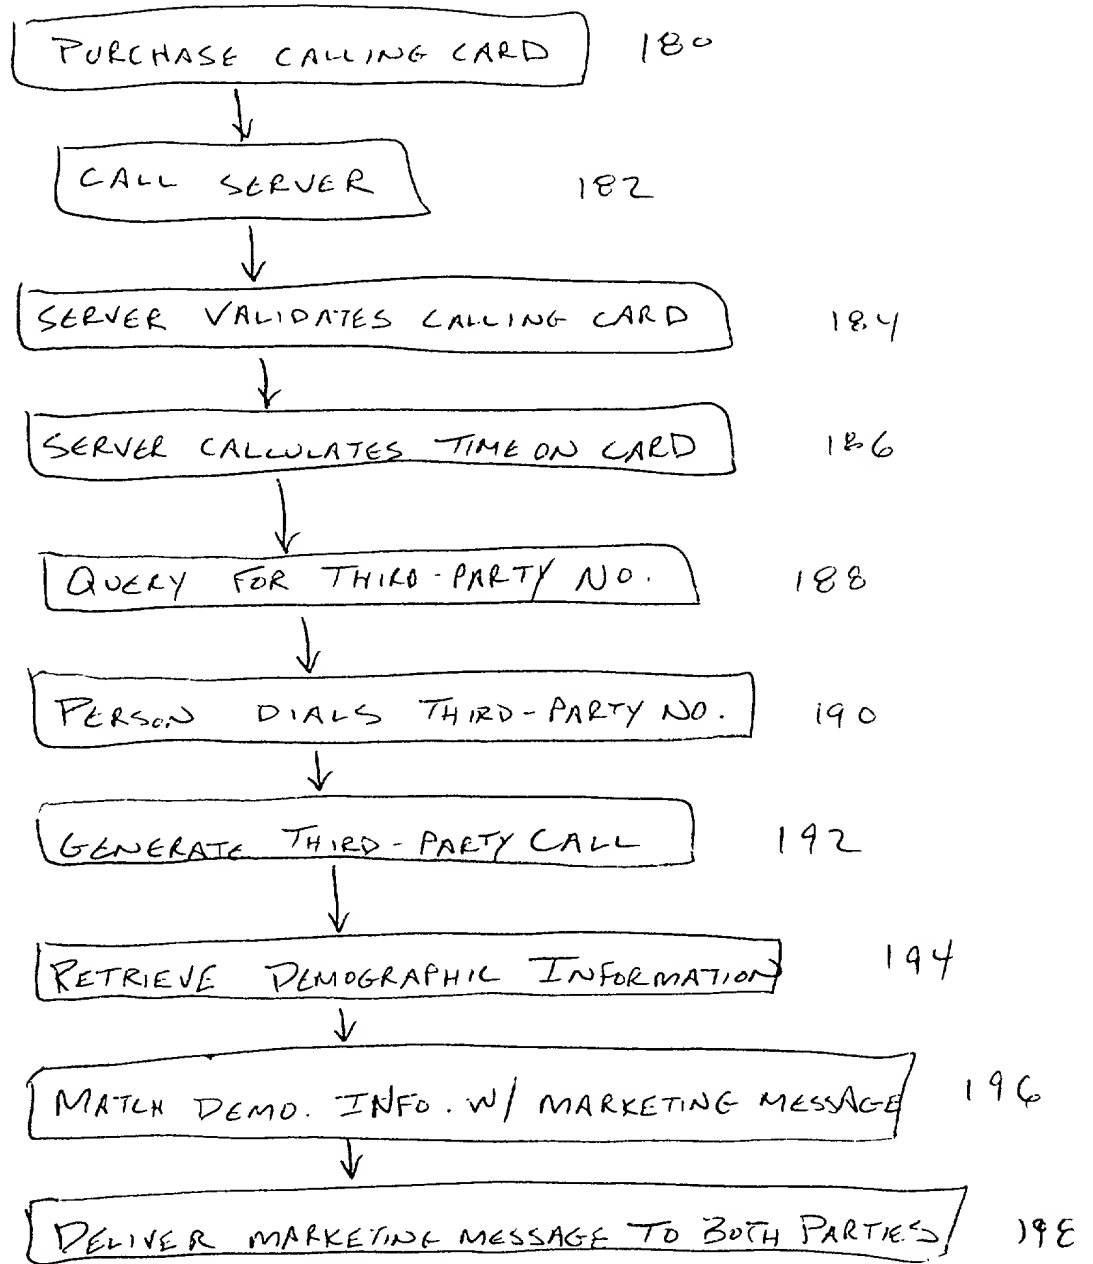 PURCHASE CALLING CARD 180
CALL SERVER 182
SERVER VALIDATES CALLING CARD 184
SERVER CALCULATES TIME ON CARD 186
QUERY FOR THIRD-PARTY NO. 188
PERSON DIALS THIRD-PARTY NO. 190
GENERATE THIRD-PARTY CALL 192
RETRIEVE DEMOGRAPHIC INFORMATION 194
MATCH DEMO. INFO. W/ MARKETING MESSAGE 196
DELIVER MARKETING MESSAGE TO BOTH PARTIES 198